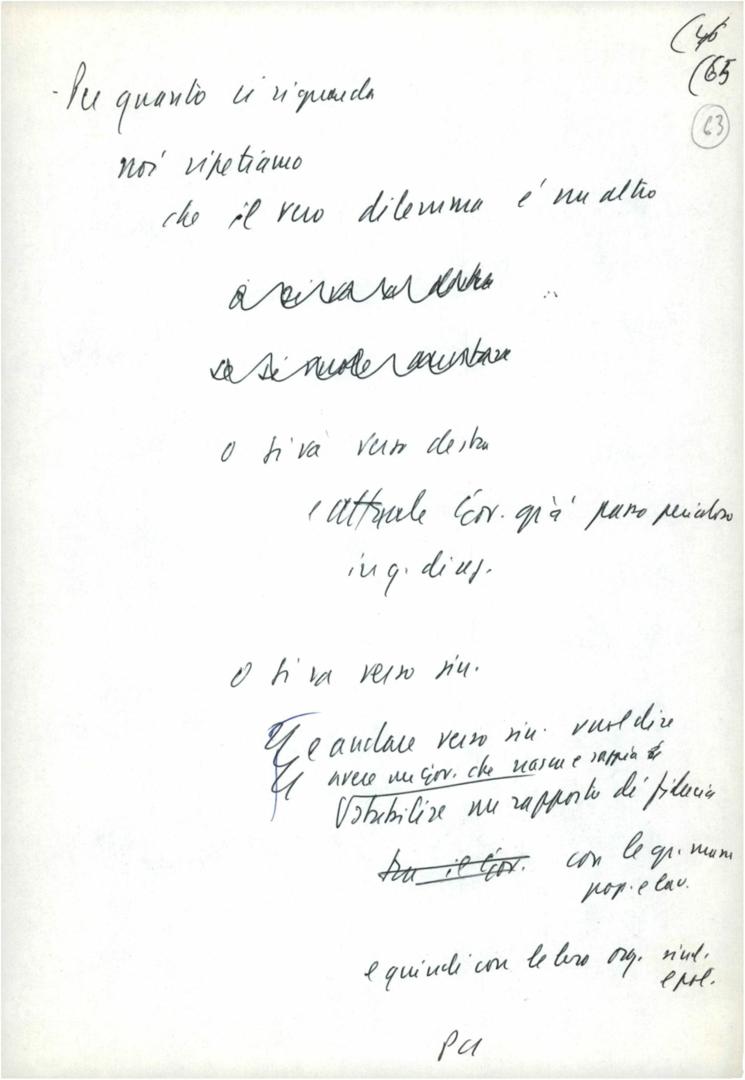 (46
(65
63
- Per quanto ci riguarda
noi ripetiamo
che il vero dilemma é un altro
o si va verso destra
se si vuole
o si va verso destra
e attuale Gov. già passo pericoloso
in q. direz.
o si va verso sin.
e andare verso sin. vuol dire
avere un Gov. che nasca e sappia
stabilire un rapporto di fiducia
tra il Gov. con le gr. masse
pop. e lav.
e quindi con le loro org. sind.
e pol.
PCI